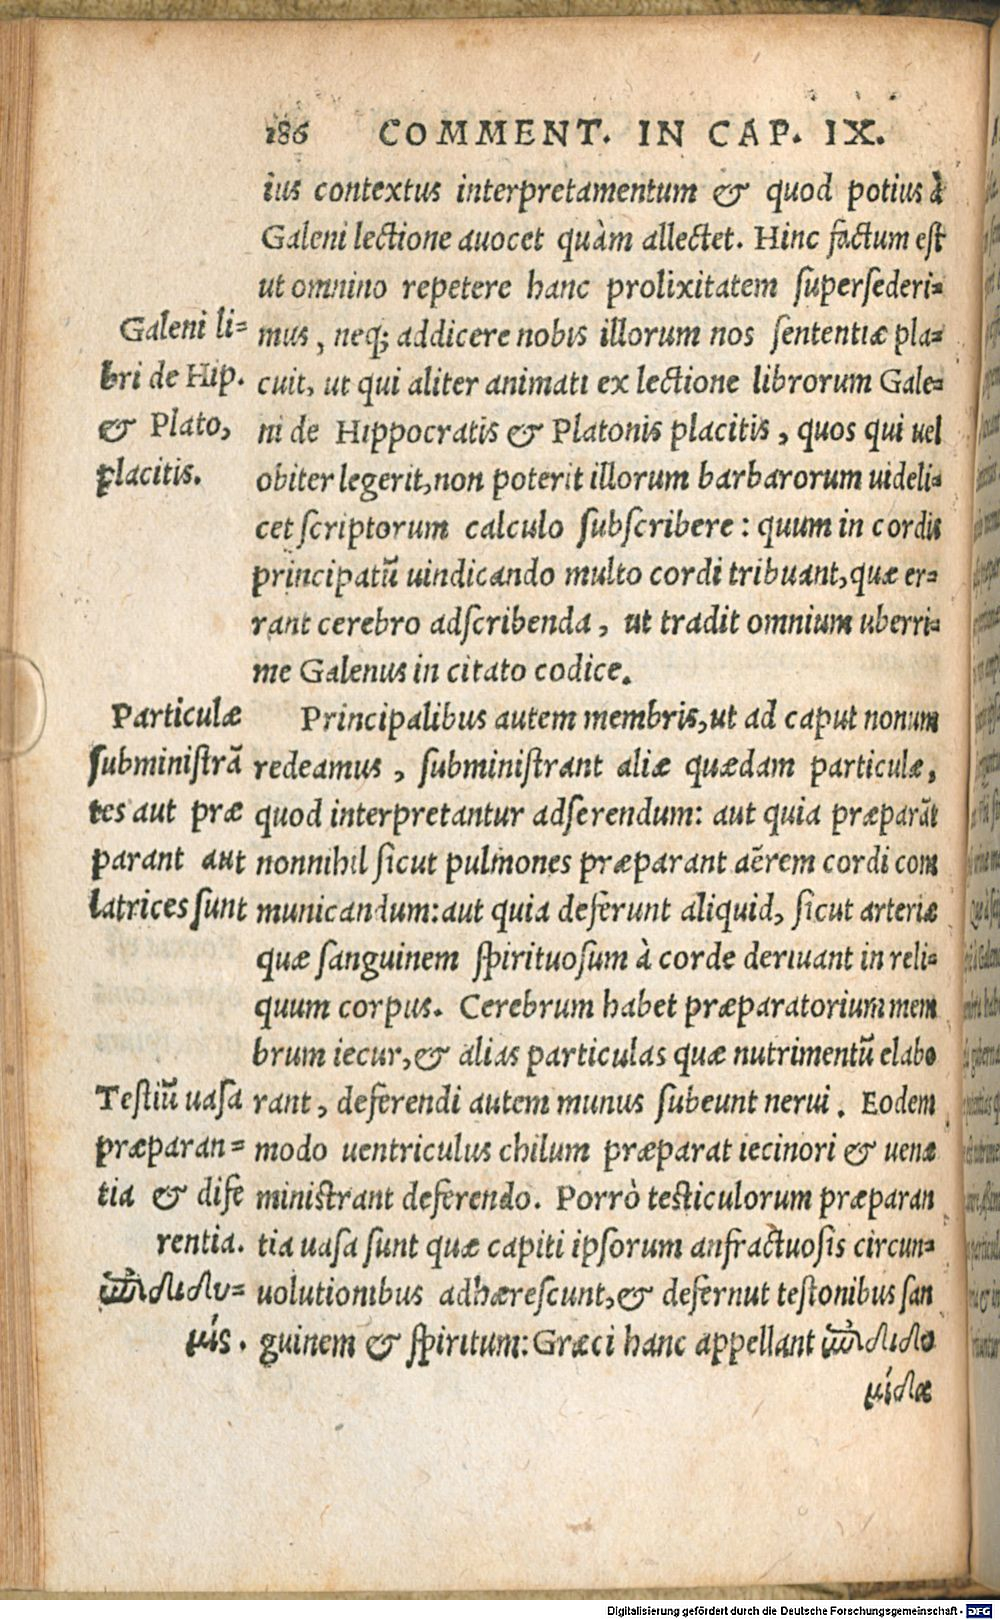 186 COMMENT. IN CAP. IX.
ius contextus interpretamentum & quod potius à
Galeni lectione auocet quàm allectet. Hinc factum est
ut omnino repetere hanc prolixitatem supersederi-
mus, neq; addicere nobis illorum nos sententiæ pla-
cuit, ut qui aliter animati ex lectione librorum Gale-
ni de Hippocratis & Platonis placitis, quos qui uel
obiter legerit, non poterit illorum barbarorum uideli-
cet scriptorum calculo subscribere: quum in cordis
principatũ uindicando multo cordi tribuant, quæ er-
rant cerebro adscribenda, ut tradit omnium uberri-
me Galenus in citato codice.
Galeni li-
bri de Hip.
& Plato,
placitis.
Principalibus autem membris, ut ad caput nonum
redeamus, subministrant aliæ quædam particulæ,
quod interpretantur adserendum: aut quia præparãt
nonnihil sicut pulmones præparant aẽrem cordi com
municandum: aut quia deferunt aliquid, sicut arteriæ
quæ sanguinem spirituosum à corde deriuant in reli-
quum corpus. Cerebrum habet præparatorium mem
brum iecur, & alias particulas quæ nutrimentũ elabo
rant, deferendi autem munus subeunt nerui. Eodem
modo uentriculus chilum præparat iecinori & uenæ
ministrant deferendo. Porrò testiculorum præparan
tia uasa sunt quæ capiti ipsorum anfractuosis circun-
uolutionibus adhærescunt, & defernut testonibus san
guinem & spiritum: Græci hanc appellant ὠπιδιδυ
μίδα
Particulæ
subministrã
tes aut præ
parant aut
latrices sunt
Testiũ uasa
præparan-
tia & dife
rentia.
ὠπιδιδυ-
μίς.
Digitalisierung gefördert durch die Deutsche Forschungsgemeinschaft - DFG